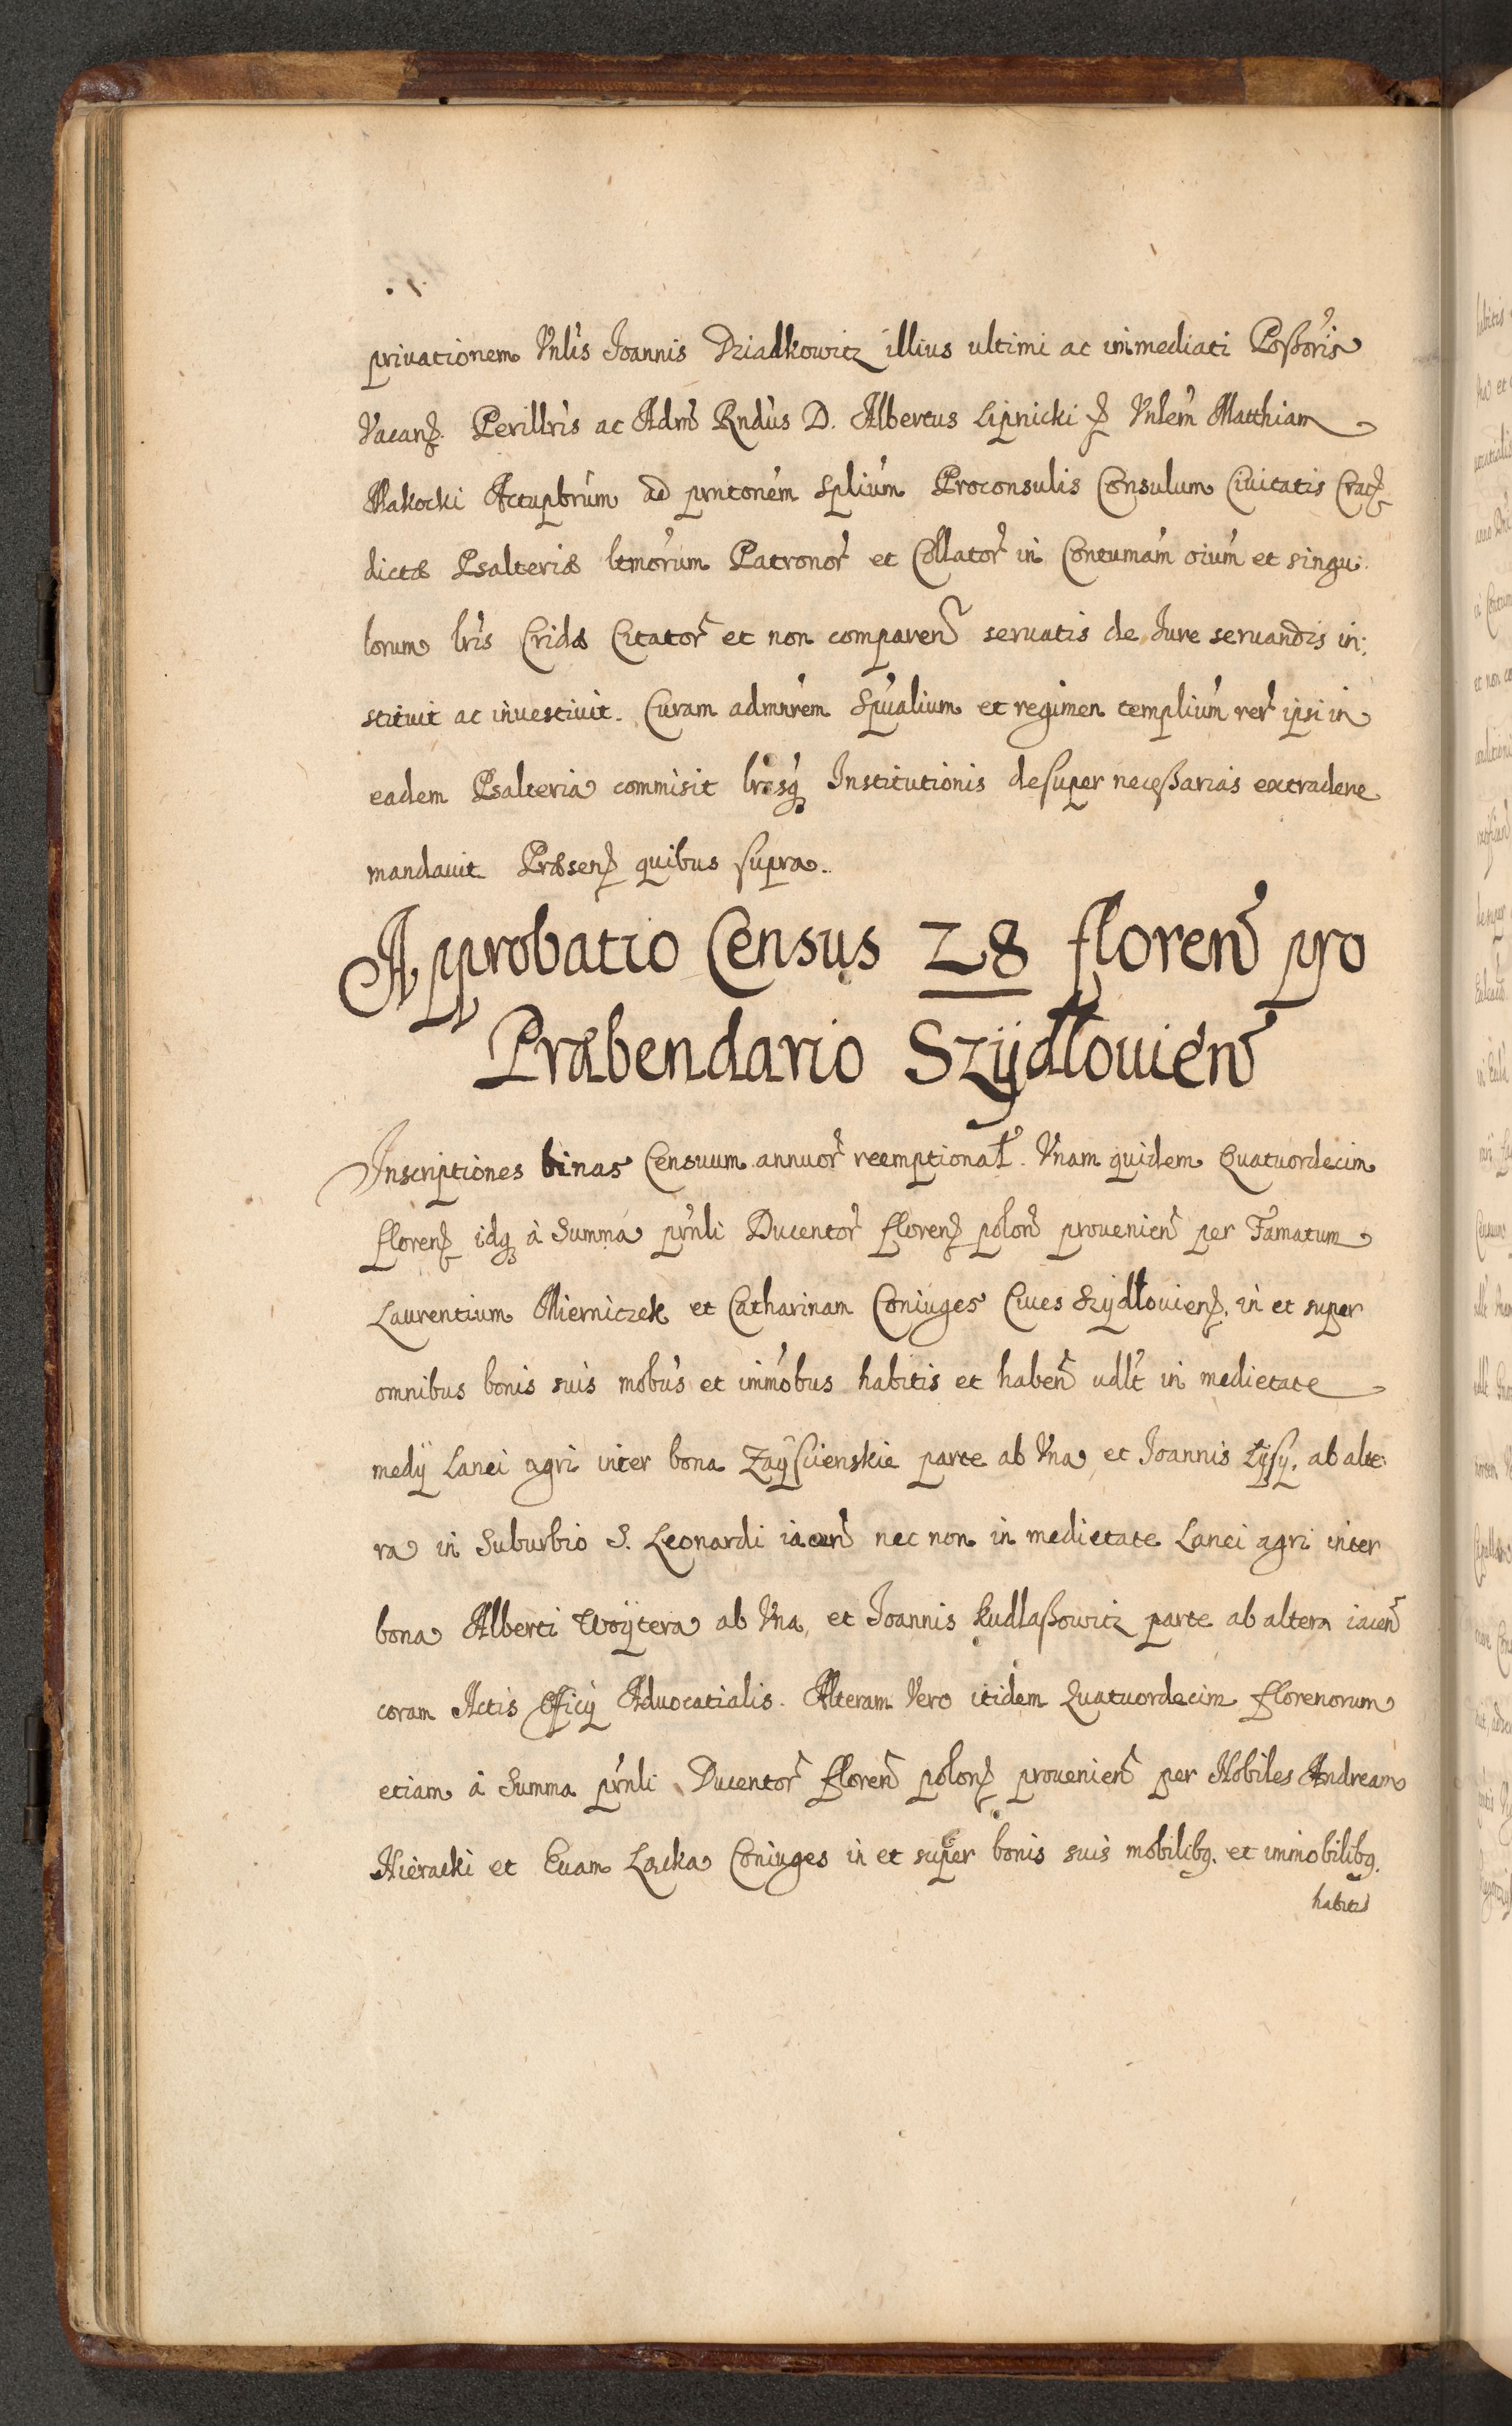 priuationem Vnlis Joannis Dziadkowitz illius ultimi ac immediati Poßoris
Vacan. Perillris ac Adm Rndus D. Albertus Lipnicki Vnlem Matthiam
Makocki Actupbrum ad pntonem splium Proconsulis Consulum Ciuitatis Crac
dictæ Psalteriæ ltmorum Patronor et Collator in Contumam oium et singu:
lorum lris Cridæ Citator et non comparen seruatis de Jure seruandis in:
stituit ac inuestiuit. Curam admnrem Spualium et regimen templium rer ipsi in
eadem Psalteria commisit lrasq Institutionis desuper neceßarias extradere
mandauit Præsen quibus supra.
Approbatio Census 28 floren pro
Præbendario Szÿdłouien
Inscriptiones binas Censuum annuor reemptional. Vnam quidem Quatuordecim
floren idq à Summa prnli Ducentor floren polon prouenien per Famatum
Laurentium Mierniczek et Catharinam Coniuges Ciues Szÿdłouien. in et super
omnibus bonis suis mobus et immobus habitis et haben udlt in medietate
medÿ Lanei agri inter bona Zaÿscienskie parte ab Vna et Joannis Łÿsÿ. ab alte:
ra in Suburbio S. Leonardi iacen nec non in medietate Lanei agri inter
bona Alberti Woÿtera ab Vna, et Joannis Kudlaßowitz parte ab altera iacen
coram Actis Officÿ Aduocatialis. Alteram Vero itidem Quatuordecim florenorum
etiam à Summa prnli Ducentor floren polon prouenien per Nobiles Andream
Hieracki et Euam Lacka Coniuges in et super bonis suis mobilibq. et immobilibq.
habitis